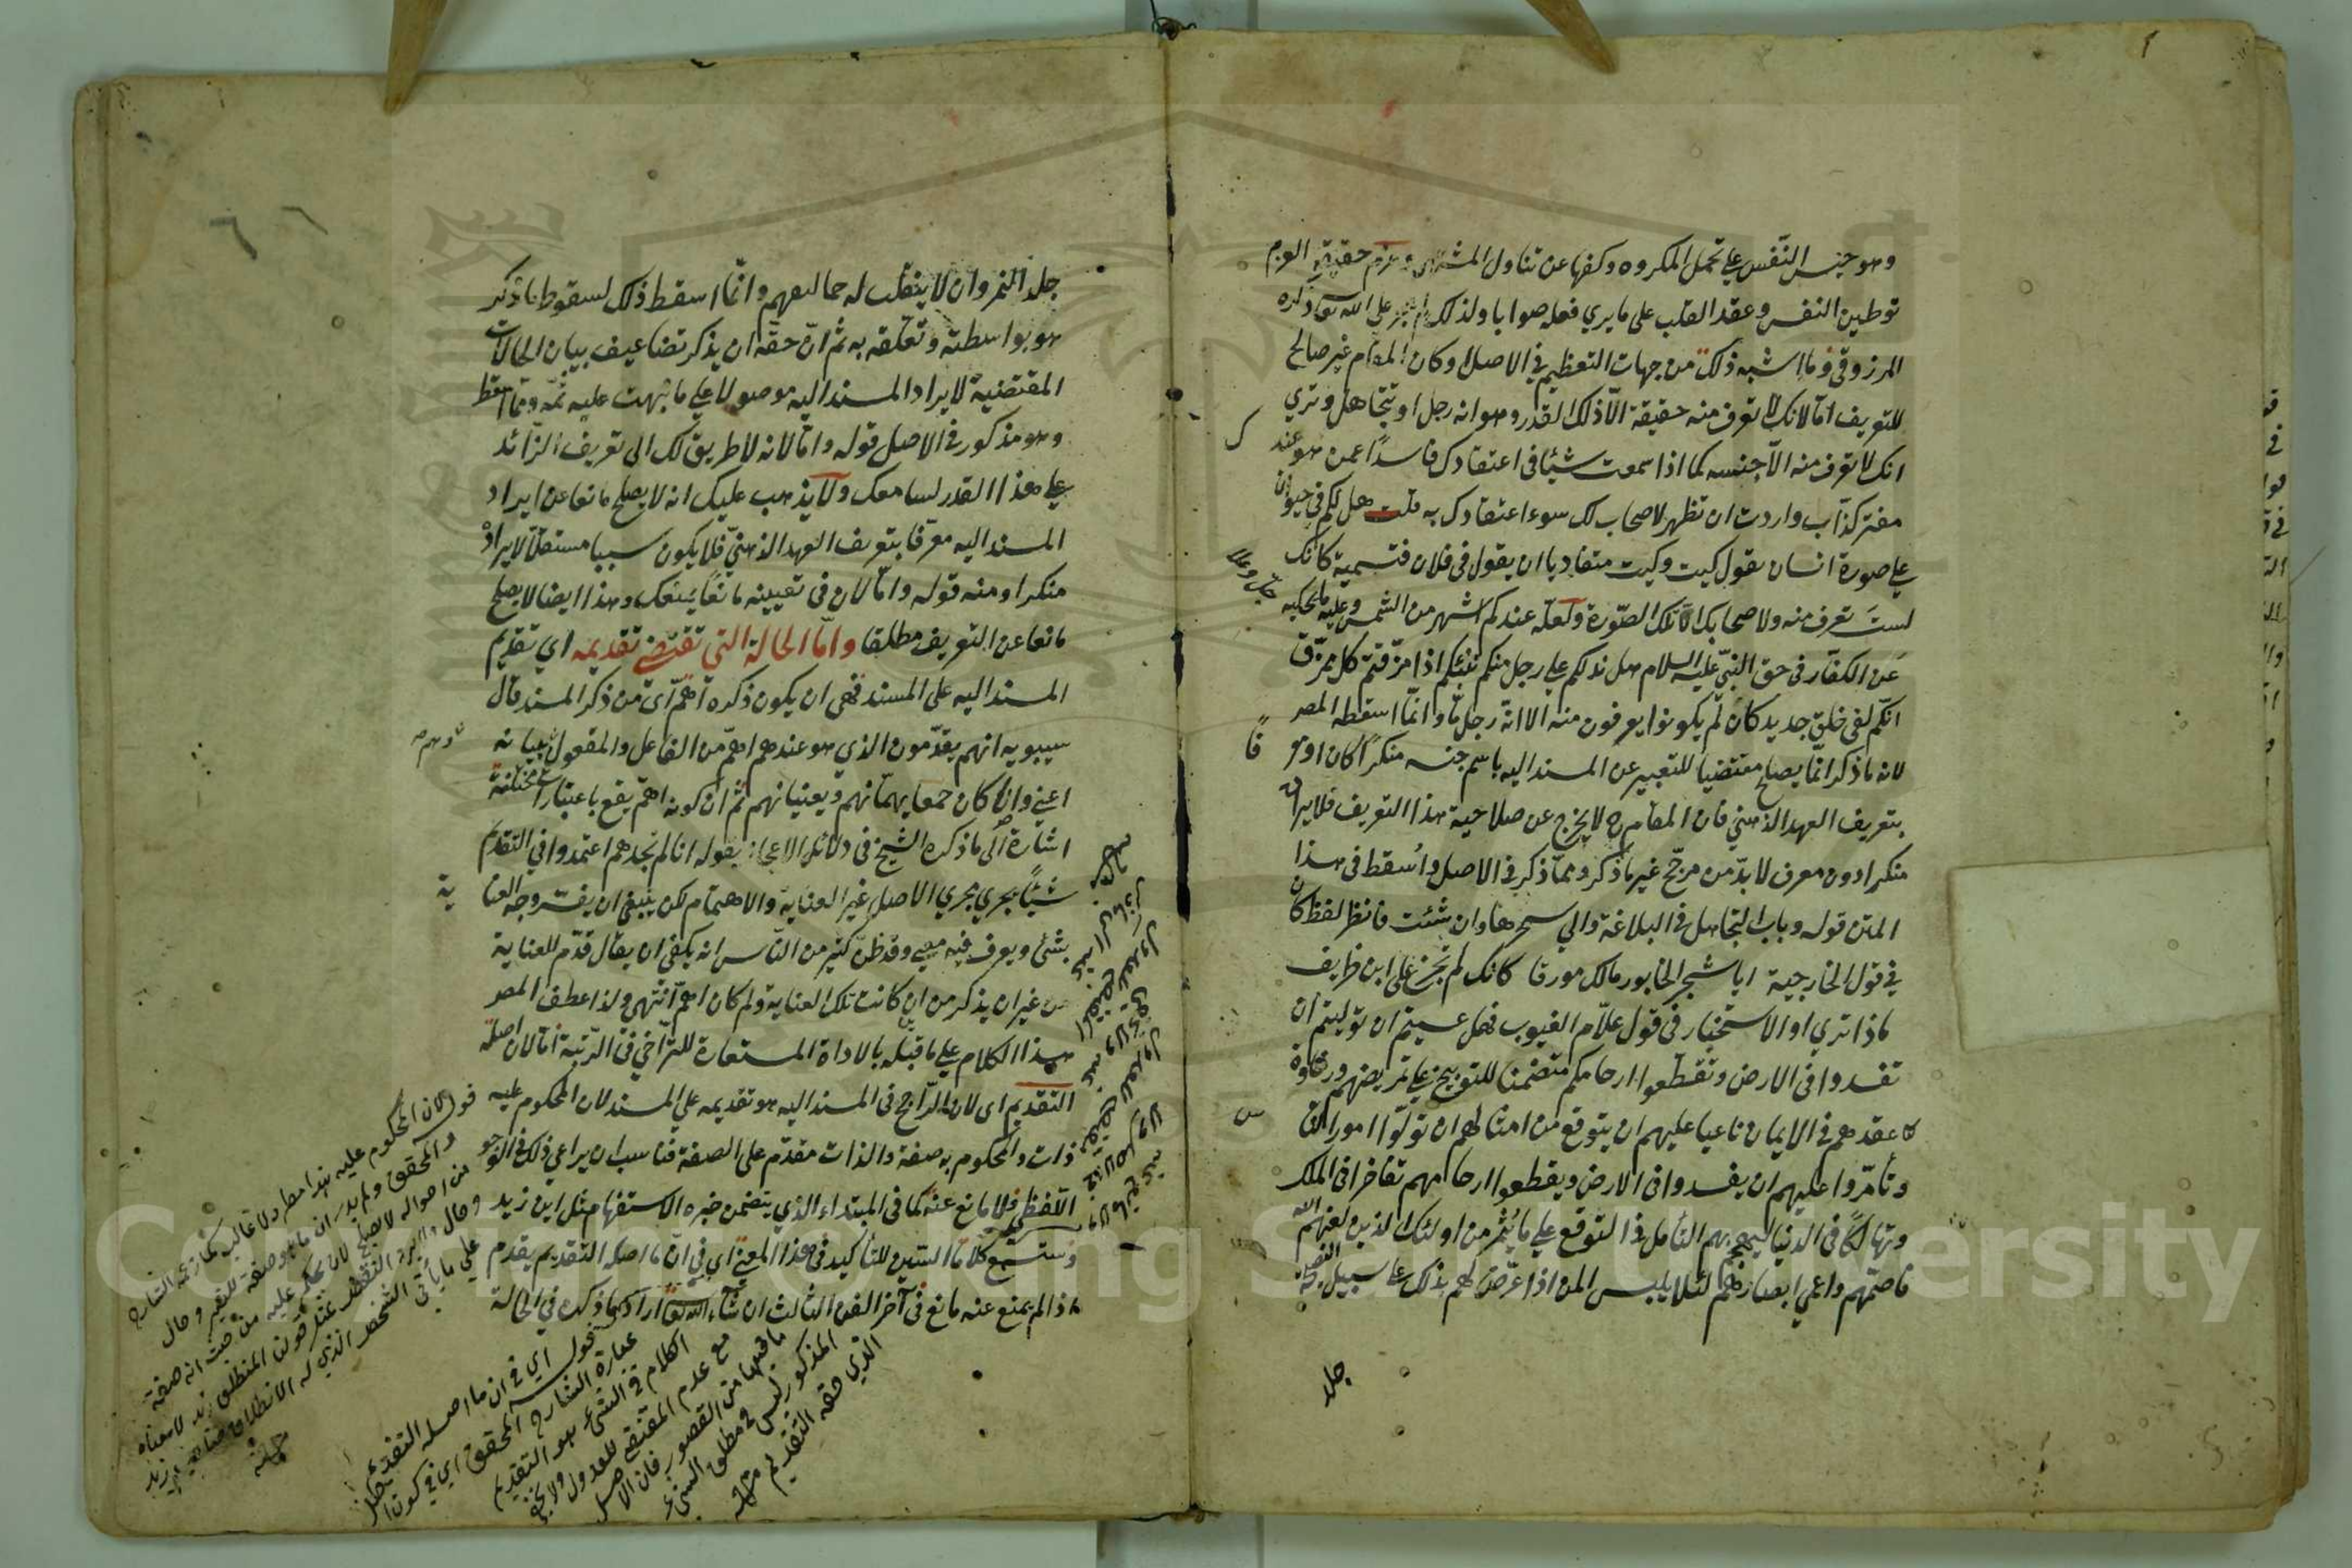 وهو حبس النّفس علي تحمل المكروه وكفها عن تناول المشتهى وعزم حقيقة العزم
توطين النفس وعقد القلب على ما يري فعله صوابا ولذلك لم يجز علي الله تعا ذكره
المرزوقي وما اشبه ذلك من جهات التعظيم في الاصل اوكان المقام غير صالح
للتعريف امّا لانك لا تعرف منه حقيقة الّا ذلك القدر وهو انه رجل او تتجاهل وتري
انك لا تعرف منه الّا جنسه كما اذا سمعت شيئا في اعتقادك فاسدًا عمن هو عندك
مفتر كذّاب واردت ان تظهر لاصحاب لك سوء اعتقادك به قلت هل لكم في حيوان
علي صورة انسان يقول كيت وكيت متفاديا ان يقول في فلان فتسمية كانك
لست تعرف منه ولاصحابك الّا تلك الصّورة ولعلّه عندكم اشهر من الشمس وعليه ما يحكيه جلّ وعلا
عَن الكفّار في حق النبيّ عليه السلام هل ندلكم علي رجل منكم ننبئكم اذا مزّقتم كل ممزّق
انّكم لفي خلق جديد كان لّم يكونوا يعرفون منه الا انّه رجل مّا وانّما اسقطه المصر
لانه ما ذكر انّما يصلح مقتضيا للتعبير عن المسند اليه باسم جنسه منكرًا كان او معرفًا
بتعريف العهد الذهني فان المقام ح لا يخرج عن صلاحية هذا التعريف فلايراده
منكرا دون معرف لا بدّ من مرجّح غير ما ذكر وممّا ذكر في الاصل واُسقط في هذا
المتن قوله وباب التجاهل في البلاغة والي سحرها وان شئت فانظر لفظ كان
في قول الخارجية ايا شجر الخابور مالك مورقا كانك لم تجزع على ابن طريف
ماذا تري او الاستخبار في قول علّام الغيوب فهل عسيتم ان توليتم ان
تفسدوا في الارض وتقطعوا ارحامكم متضمنا للتوبيخ علي تمريضهم ورخاوة
عقدهم في الايمان ناعيا عليهم ان يتوقع من امثالهم ان تولّوا امور الناس
وتأمّروا عليهم ان يفسدوا في الارض ويقطعوا ارحامهم تفاخرا في الملك
وتهالكًا في الدنيا ليهجم بهم التأمل في التوقع علي ما يُثمر من اولئك الذين لعنهم الله
فاصمّهم واعمي ابصارهم لئلا يلبس المن اذا عرّض لهم بذلك علي سبيل النصيحة
جلد
جلد النمر وان لا ينقلب له حماليقهم وانّما اسقط ذلك لسقوط ما ذكر
هو بواسطته وتعلّقه به ثم انّ حقّه ان يذكر تضاعيف بيان الحالات
المقتضية لايراد المسند اليه موصولا علي ما نبهت عليه ثمّه وممّا اسقط
وهو مذكور في الاصل قوله وامّا لانه لا طريق لك الى تعريف الزّائد
علي هذا القدر لسامعك ولا يذهب عليك انه لا يصلح مانعا عن ايراد
المسند اليه معرّفا بتعريف العهد الذهنيّ فلا يكون سببا مستقلّا لايراده
منكرا ومنه قوله وامّا لان في تعيينه مانعًا يمنعك وهذا ايضا لا يصلح
مانعا عن التعريف مطلقا وامّا الحالة التي تقتضي تقديمه اي تقديم
المسند اليه على المسند فهي ان يكون ذكره اهمّ اى من ذكر المسند قال
سيبويه انهم يقدّمون الذي هو عندهم اهمّ من الفاعل والمفعول ببيانه
اعني وان كان جميعا يهمّانهم ويعنيانهم ثم ان كونه اهم يقع باعتبارات مختلفة
اشارة الى ما ذكره الشيخ في دلائل الاعجاز بقوله انا لم نجدهم اعتمدوا في التقدّم
شيئًا يجري مجري الاصل غير العناية والاهتمام لكن ينبغي ان يفسّر وجه العناية
بشئ ويعرف فيه معنى وقد ظنّ كثير من النّاس انه يكفي ان يقال قدّم للعناية
من غير ان يذكر من اين كانت تلك العناية ولم كان اهمّ انتهى ولذا عطف المصر
هذا الكلام علي ما قبله بالاداة المستعارة للتّراخي في الرّتبة امّا لان اصله
التقديم اى لان الرّاجح في المسند اليه هو تقديمه علي المسند لان المحكوم عليه
ذات والمحكوم به صفة والذات مقدّم على الصفة فناسب ان يراعي ذلك في الوجود
اللّفظي ولا مانع عنه كما في المبتداء الذي يتضمن خبره الاستفهام مثل اين زيد
وستسمع كلاما البتين للتأكيد في هذا المعنى اي في انّ ما اصله التقديم يقدم
اذا لم يمنع عنه مانع في آخر الفن الثالث ان شاء الله تعا اراد كما ذكره في الحالة
قوله لان المحكوم عليه هذا مطرد لا غالب كما زعمه الشارح
والمحقق ولم يدر ان ما هو صفة للغير وحال
من احواله لا يصلح لان يحكم عليه من حيث انه صفة
قوله اي في ان ما اصله التقديم
عبارة الشارح المحقق اي في كون
الكلام في الشئ هو التقديم
مع عدم المقتضي للعدول ولا يخفى
ما فيها من القصور فان الاصل
المذكور ليس في مطلق الشئ
الذي حقه التقديم منه